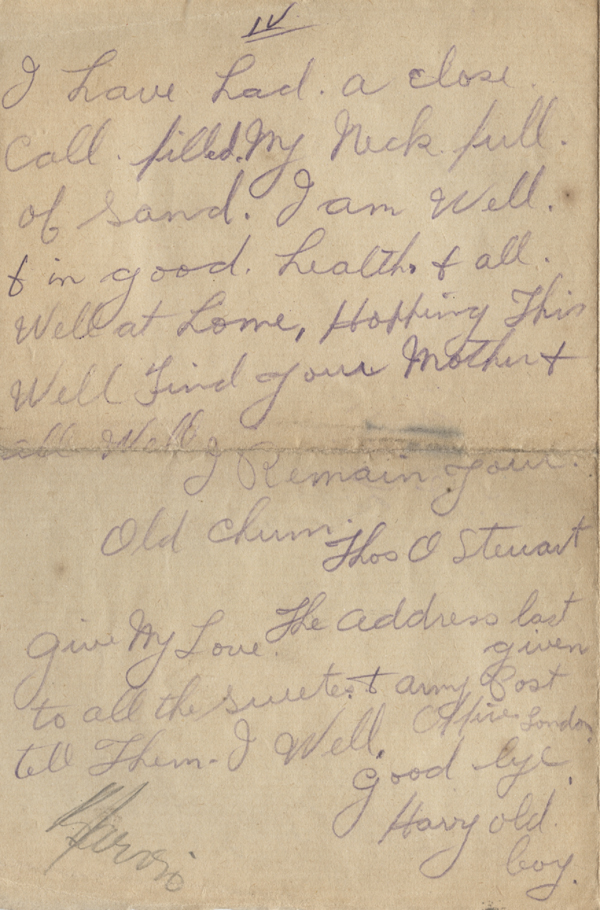 IV
I have had. a close.
Call. filled. My Neck full.
of sand. I am Well.
& in good. health. & all.
Well at home, Hopping This
Well Find your Mother &
all Well I
I Remain your.
Old chum.
Thos O Stewart
The address last
given
army Post
Office London
Give My Love.
to all the sweetest
tell Them. I Well.
Good bye.
Harry old.
boy.